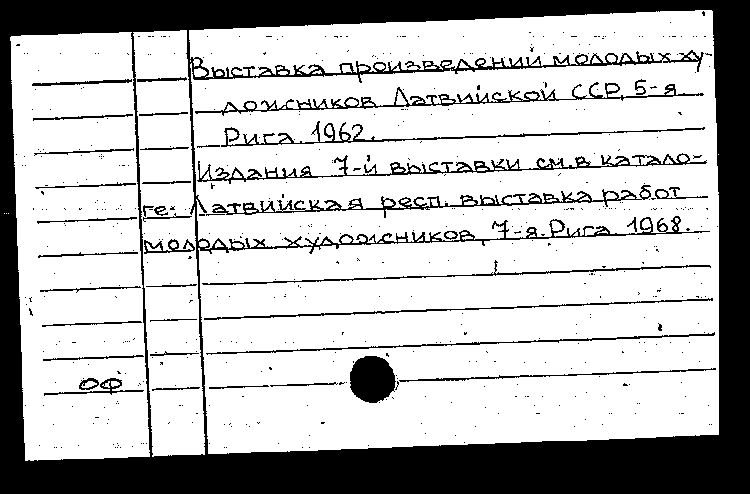 Выставка произведений молодых ху-
дожников Латвийской ССР, 5-я
Рига. 1962.
Издания 7-й выставки см. в катало-
ге: Латвийская респ. выставка работ
молодых художников, 7-я. Рига 1968.
ОФ